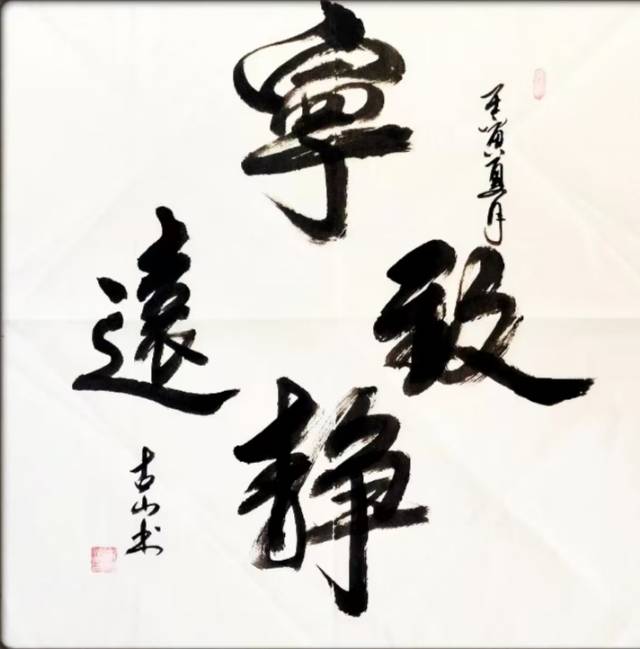 壬寅夏月
寧
静
致
遠
古山书